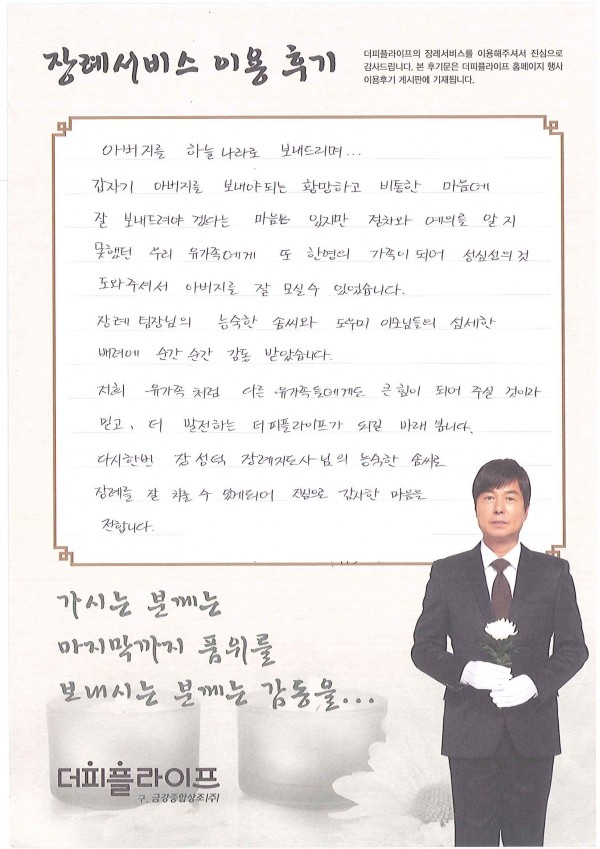 장례서비스 이용 후기
더피플라이프의 장례서비스를 이용해주셔서 진심으로
감사드립니다. 본 후기문은 더피플라이프 홈페이지 행사
이용후기 게시판에 기재됩니다.
아버지를 하늘나라로 보내드리며...
갑자기 아버지를 보내야되는 황망하고 비통한 마음에
잘 보내드려야 겠다는 마음은 있지만 절차와 예의를 알지
못했던 우리 유가족에게 또 한명의 가족이 되어 성심성의것
도와주셔서 아버지를 잘 모실수 있었습니다.
장례 팀장님의 능숙한 솜씨와 도우미 이모님들의 섬세한
배려에 순간 순간 감동 받았습니다.
저희 유가족 처럼 다른 유가족들에게도 큰힘이 되어 주실 것이라
믿고, 더 발전하는 더피플라이프가 되길 바래 봅니다.
다시한번 강성덕 장례지도사님의 능숙한 솜씨로
장례를 잘 치를 수 있게되어 진심으로 감사한 마음을
전합니다.
가시는 분께는
마지막까지 품위를
보내시는 분께는 감동을...
더피플라이프
구. 금강종합상조(주)